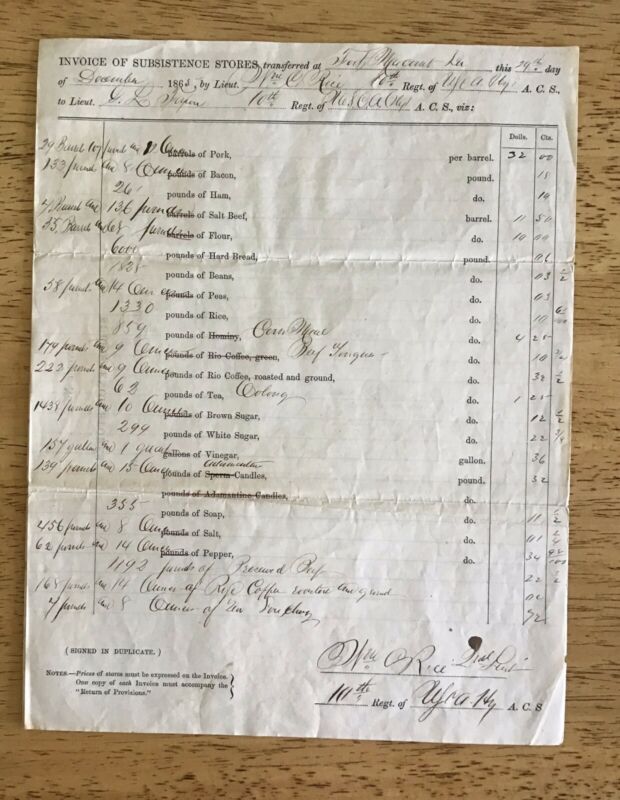 INVOICE OF SUBSISTENCE STORES, transferred at Fort Macomb La this 29th day
of December 1865, by Lieut. Wm O Rice 10th Regt. of A. C. S.,
to Lieut. G. L. 10th Regt. of A. C. S., viz:
Dolls. Cts.
29 Barrels 107 pounds and barrels of Pork, per barrel. 32 00
133 pounds and 8 Ounces pounds of Bacon, pound. 18
26 pounds of Ham, do. 19
4 Barrels and 136 pounds barrels of Salt Beef, barrel. 11 50
35 Barrels and 68 pounds barrels of Flour, do. 10 00
6000 pounds of Hard Bread, pound. 06
1828 pounds of Beans, do. 03 1/2
58 pounds and 14 Ounces pounds of Peas, do. 03
1330 pounds of Rice, do. 10
859 pounds of Hominy, Corn Meal do. 4 25
179 pounds and 9 Ounces pounds of Rio Coffee, green, Beef Tongues do. 10
222 pounds and 9 Ounces pounds of Rio Coffee, roasted and ground, do. 32 1/2
62 pounds of Tea, Oolong do. 1 25
1438 pounds and 10 Ounces pounds of Brown Sugar, do. 12 1/2
299 pounds of White Sugar, do. 22 3/4
157 gallons and 1 quart gallons of Vinegar, gallon. 36
139 pounds and 15 Ounces pounds of Sperm Candles, Adamantine pound. 32
pounds of Adamantine Candles, do.
355 pounds of Soap, do. 11 1/2
456 pounds and 8 Ounces pounds of Salt, do. 01
62 pounds and 14 Ounces pounds of Pepper, do. 34
1192 pounds of Beef 22
168 pounds and 14 Ounces of Coffee and ground
7 pounds and 8 Ounces of Tea 92
(SIGNED IN DUPLICATE.)
Wm O Rice
NOTES.—Prices of stores must be expressed on the Invoice.
One copy of each Invoice must accompany the
"Return of Provisions."
10th Regt. of A. C. S